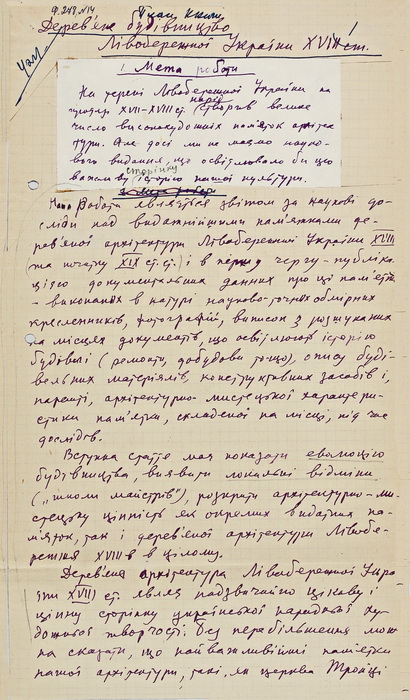 Ф. 249 №14
План книги
Дерев'яне будівництво
Лівобережної України XVIII ст.
1. Мета роботи
На терені Лівобережної України на
протязі XVII-XVIII ст. нарід створив велике
число високохудожніх пам'яток архітек
тури. Але досі ми не маємо науко-
вого видання, що освітлювало би цю
важливу сторінку історію нашої культури.
Мета роботи
Наша робота являється звітом за наукові до-
сліди над видатнійшими пам'ятками де-
рев'яної архітектури Лівобережної України XVIII
(та початку XIX ст. ст.) і в першу чергу - публіка-
цією документальних даних про ці пам'ятки
- виконаних в натурі науково-точних обмірних
креслеників, фотографій, виписок з розшуканих
на місцях документів, що освітлюють історію
будівлі (ремонти, добудови тощо), опису буді-
вельних матеріялів, конструктивних засобів і,
нарешті, архітектурно-мистецької характери-
стики пам'ятки, складеної на місці, під час
дослідів.
Вступна стаття має показати еволюцію
будівництва, виявити локальні відміни
("школи майстрів"), розкрити архітектурно-ми-
стецьку цінність як окремих видатних па-
м'яток, так і дерев'яної архітектури Лівобе-
режжя XVIII в. в цілому.
Дерев'яна архітектура Лівобережної Укра-
їни XVIII ст. являє надзвичайно цікаву і
цінну сторінку української народної ху-
дожньої творчості. Без перебільшення мож-
на сказати, що найважливійші пам'ятки
нашої архітектури, такі, як церква Тройці